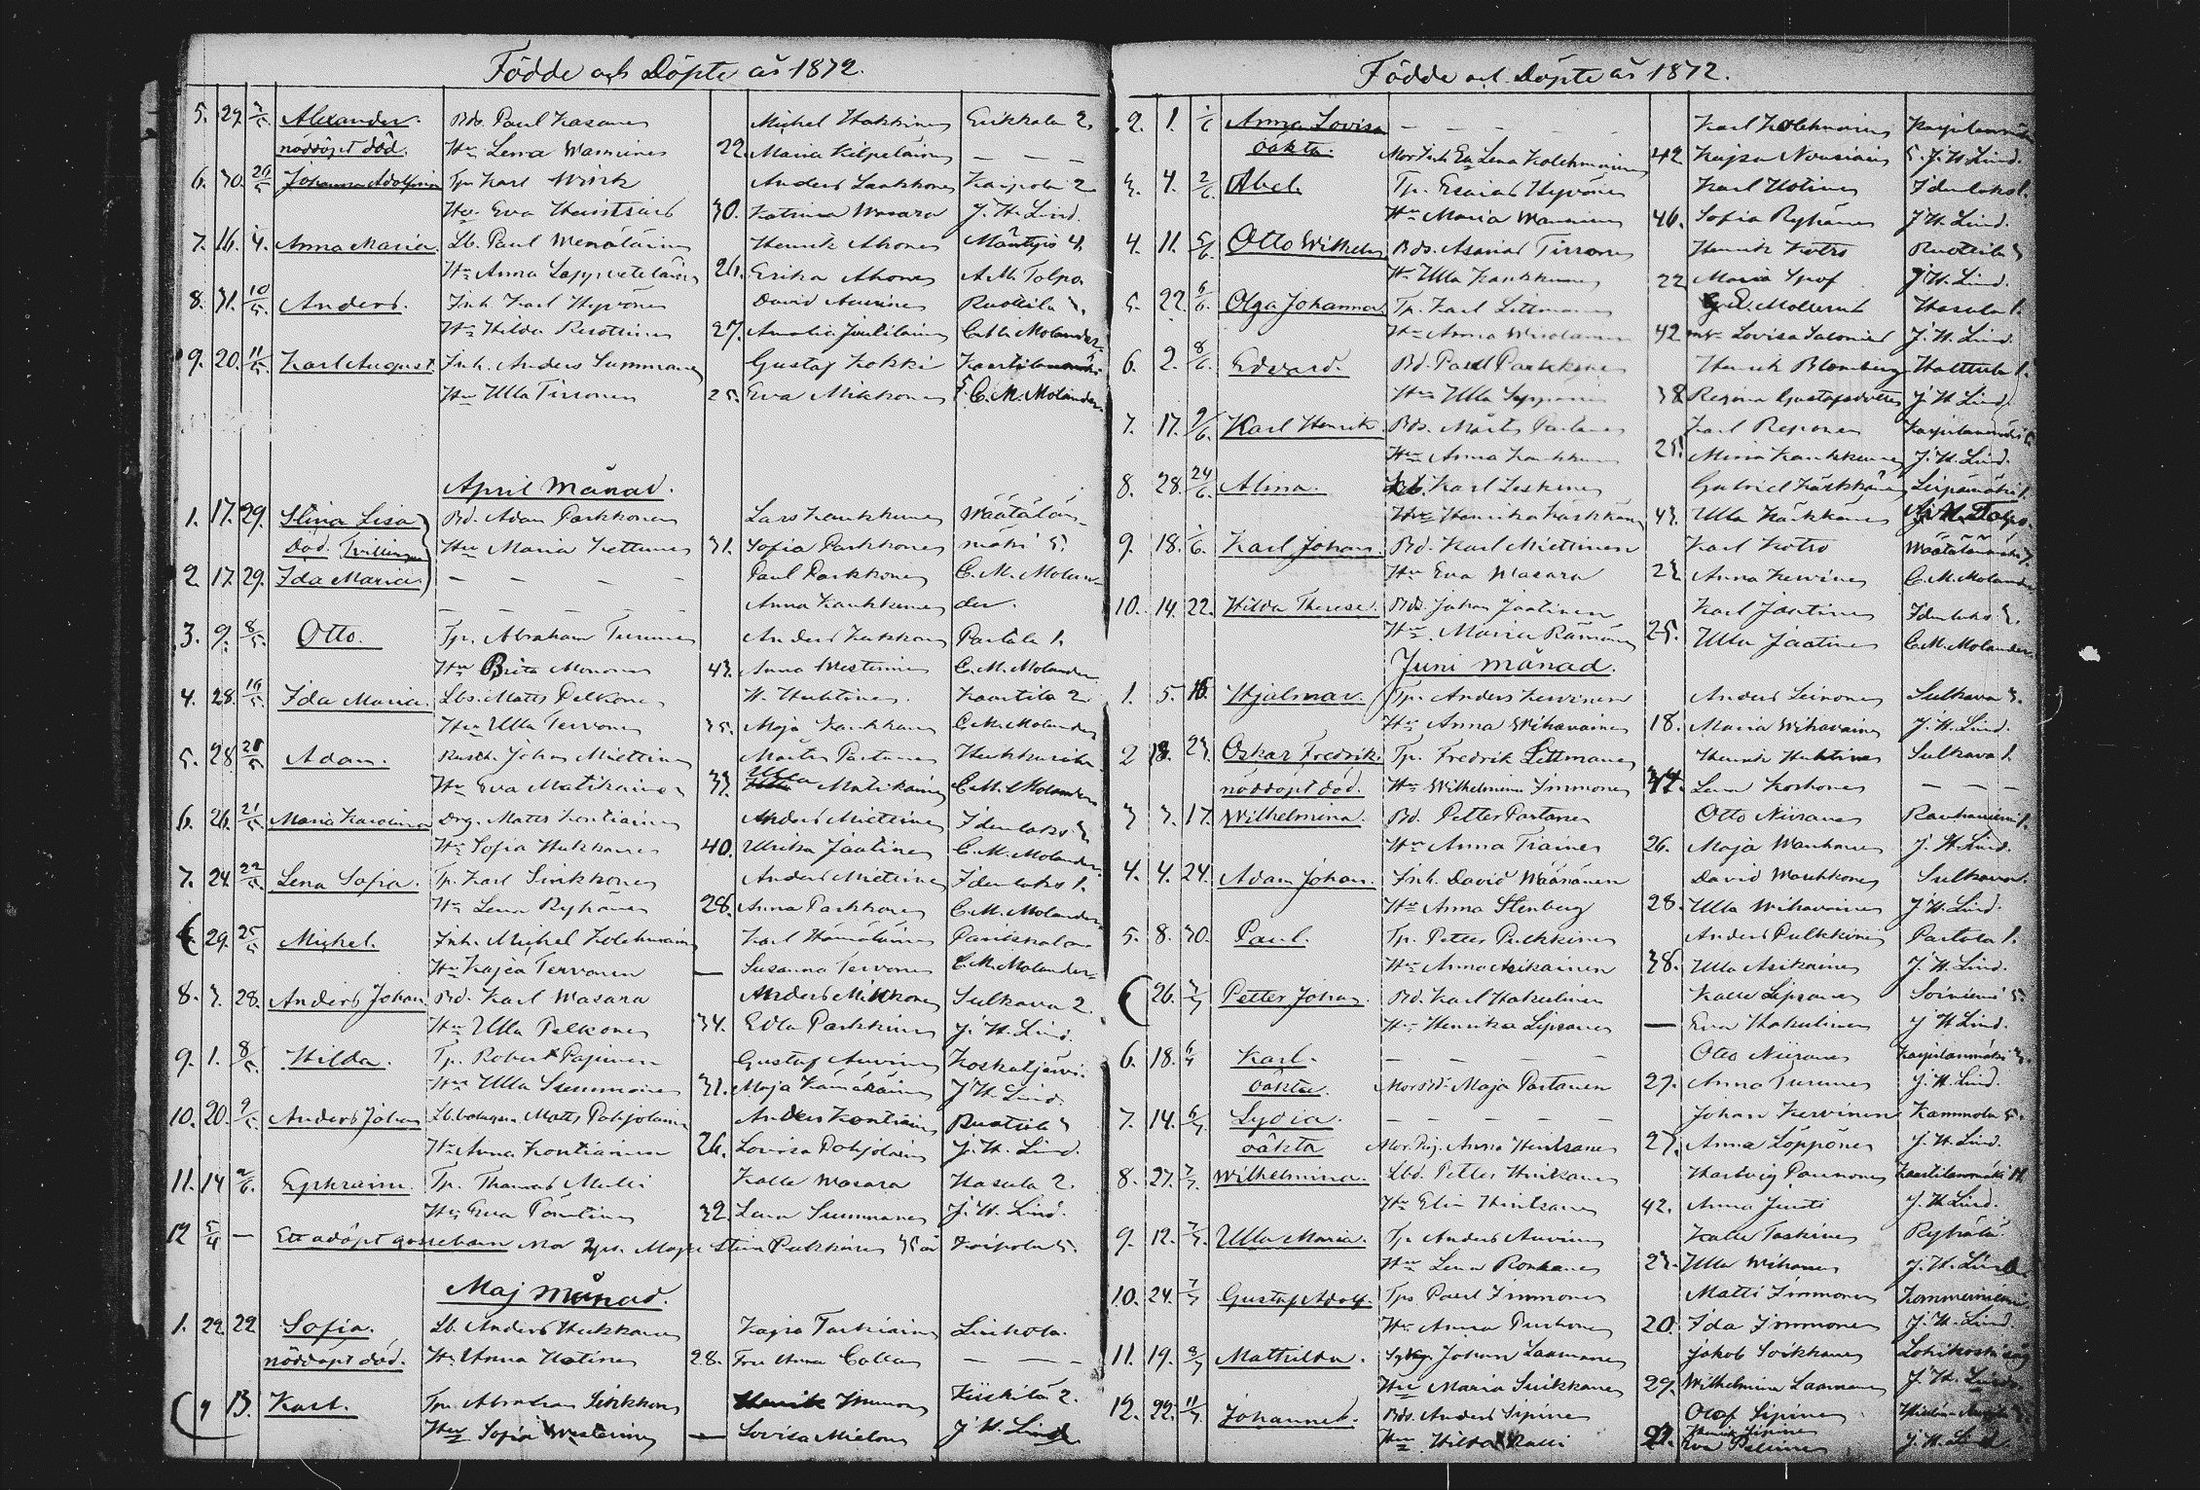 Födde och Döpte år 1872.
5. 29. Alexander. Bds. Paul Kasanen Michel Hakkinen Eerikkala 2.
nöddöpt död. Hu Lena Manninen 22 Maria Kilpeläinen — — —
6. 30. 26/5 Johanna Adolfina Tp. Karl Mörk Anders Laukkanen Kaipola 2
Hu Eva Hintsain 30. Katrina Wasara J. H. Lind.
7. 16. 4. Anna Maria. Lb. Paul Henrik Ahonen Mäntyis 4.
Hu Anna Lappveteläinen 26. Erika Ahonen A. M. Tolpo.
8. 31. 10/5. Anders. Inh. Karl Hyvönen David Auvinen Ruottila
Hu Hilda Ruottinen 27. Amalia C. M. Molander.
9. 20. 11/5. Karl August. Inh. Anders Summanen Gustaf Kokki Kaartilanmäki
Hu Ulla Tirronen 25. Eva Mikkonen 5. C. M. Molander.
April månad.
1. 17. 29. Stina Lisa Bd. Adam Parkkonen Lars Kaukkunen Wäätälän-
Död. Tvillingar Hu Maria Kettunen 31. Sofia Parkkonen mäki 5.
2. 17. 29. Ida Maria — — — — Paul Parkkonen C. M. Molan-
— — — — — Anna Kaukkunen der.
3. 9. 8/5. Otto. Tp. Abraham Turunen Anders Kukkonen Partala 1.
Hu Brita Mononen 43. Anna Westerinen C. M. Molander
4. 28. 19/5. Ida Maria. Lbs. Matts Pelkonen H. Huhtinen Kaartila 2
Hu Ulla Tervonen 35. Maja Kaukkanen C. M. Molander
5. 28 20/5 Adam. Johan Miettinen Mårten Partanen
Hu Eva Matikainen 33. Ulla Matikainen C. M. Molander
6. 26. 21/5 Maria Karolina Drg. Matts Kontiainen Anders Miettinen Idenlaks 5
Hu Sofia Hukkanen 40. Ulrika Jaatinen C. M. Molander.
7. 24. 22/5. Lena Sofia. Tp. Karl Sinkkonen Anders Miettinen Idenlaks 1.
Hu Lena Ryhänen 28. Anna Parkkonen C. M. Molander
29. 25/5 Michel. Inh. Michel Kolehmainen Karl Hämäläinen Pariskala
Hu Kajsa Tervonen — Susanna Tervonen C. M. Molander.
8. 3. 28. Anders Johan Bd. Karl Wasara Anders Mikkonen Sulkava 2.
Hu Ulla Pelkonen 34. Edla Parkkinen J. H. Lind.
9. 1. 8/5. Hilda. Tp. Robert Pajunen Gustaf Auvinen Koskatjärvi.
Hu Ulla Summanen 31. Maja Hämäläinen J. H. Lind.
10. 20. 9/5. Anders Johan Matts Pohjolainen Anders Kontiainen Ruottila 5
Hu Anna Kontiainen 26. Lovisa Pohjolainen J. H. Lind.
11. 14 2/6. Ephraim. Tp. Thomas Mulli Kalle Wasara Hasula 2.
Hu Eva Töntinen 32. Lena Summanen J. H. Lind.
12 5/4 — Ett odöpt gossebarn Mor Maja Stina Pulkkinen 35 år Kaipola 5.
Maj månad.
1. 22 22 Sofia. Lb. Anders Hukkanen Kajsa Tarkiainen Linkola.
nöddöpt död. Hu Anna Hotinen 28. Fru Anna — — —
9 13. Karl. Tp. Abraham Sinkkonen Henrik Immonen Kiiskilä 2.
Hu Sofia Westerinen — Lovisa Mielonen J. H. Lind
Födde och Döpte år 1872.
2. 1. 1/6 Anna Lovisa — — — — — Karl Kolehmainen Karjulanmäki
oäkta. Mor Inh. Eva Lena Kolehmainen 42 Kajsa Nousiain 5. J. H. Lind.
3. 4. 2/6. Abel. Tp. Esaias Hyvönen Karl Hotinen Idenlaks 1.
Hu Maria Manninen 46. Sofia Ryhänen J. H. Lind.
4. 11. 5/6. Otto Wilhelm Bds. Asarias Tirronen Henrik Kotro Ruottila 5
Hu Ulla Kaukkunen 22 Maria J. H. Lind.
5. 22. 6/6. Olga Johanna Tp. Karl Littmanen Hasula 1.
Hu Anna 42 Lovisa Salonius J. H. Lind.
6. 2. 8/6. Edvard. Bd. Paul Parkkonen Henrik Blomberg Halttula 1.
Hu Ulla Seppänen 38 Regina Gustafsdotter J. H. Lind.
7. 17. 9/6. Karl Henrik Bds. Mårten Partanen Karl Reponen Karjulanmäki 5
Hu Anna Kaukkunen 25. Miina Kaukkunen J. H. Lind.
8. 28. 24/6. Alina. Lb. Karl Leskinen Gabriel Kärkkäinen Leipämäki 1.
Hu Henrika Kärkkäinen 43. Ulla Kärkkäinen A. M. Tolpo.
9. 18. 1/6. Karl Johan. Bd. Karl Miettinen Karl Kotro Wäätälänmäki 7.
Hu Eva Wasara 23 Anna Kervinen C. M. Molander
10. 14. 22. Hilda Therese. Bds. Johan Jaatinen Karl Jaatinen Idenlaks 5.
Hu Maria Rämänen 25. Ulla Jaatinen C. M. Molander.
Juni månad.
1. 5. 16. Hjalmar. Tp. Anders Kervinen Anders Leinonen Sulkava 5.
Hu Anna Wihavainen 18. Maria Wihavainen J. H. Lind.
2 18. 23. Oskar Fredrik. Tp. Fredrik Littmanen Henrik Huhtinen Sulkava 1.
nöddöpt död. Hu Wilhelmina Immonen 34. Lena Korhonen — — —
3 3. 17. Wilhelmina. Bd. Petter Partanen Otto Niiranen Rauhaniemi 1.
Hu Anna Trainen 26. Maja Wanhanen J. H. Lind.
4. 4. 24. Adam Johan. Inh. David Wäänänen David Warkkonen Sulkava.
Hu Anna Stenberg 28. Ulla Wihavainen J. H. Lind.
5. 8. 30. Paul. Tp. Petter Pulkkinen Anders Pulkkinen Partala 1.
Hu Anna Asikainen 38. Ulla Asikainen J. H. Lind.
26. 3/7 Petter Johan. Bd. Karl Hakulinen Kalle Lipsanen Soiniemi 5.
Hu Henrika Lipsanen — Eva Hakulinen J. H. Lind.
6. 18. 6/7 Karl. — — — — — Otto Niiranen Karjulanmäki 3.
oäkta. Mor Maja Partanen 27. Anna Turunen J. H. Lind.
7. 14. 6/7. Lydia. — — — — — Johan Kervinen Kammola 5.
oäkta Mor Pig. Anna Hintsanen 27. Anna Löppönen J. H. Lind.
8. 27. 7/7. Wilhelmina. Lbd. Petter Hinkanen Hartvig Paunonen Kaartilanmäki 11
Hu Elin Hintsanen 42. Anna Junti J. H. Lind.
9. 12. 7/7. Ulla Maria. Tp. Anders Auvinen Kalle Taskinen Ryhälä.
Hu Lena Ronkanen 23. Ulla Wihanen J. H. Lind
10. 24. 7/7 Gustaf Adolf. Tp. Paul Immonen Matti Immonen Kammerniemi
Hu Anna Purhonen 20. Ida Immonen J. H. Lind.
11. 19. 8/7 Mathilda. Johan Laamanen Jakob Soikkanen Lohikoski
Hu Maria Suikkanen 29. Wilhelmina Laamanen J. H. Lind.
12. 22. 11/7 Johannes. Bds. Anders Sipinen Olof Sipinen
Hu Hilda Ralli 27. Eva Pellinen J. H. Lind